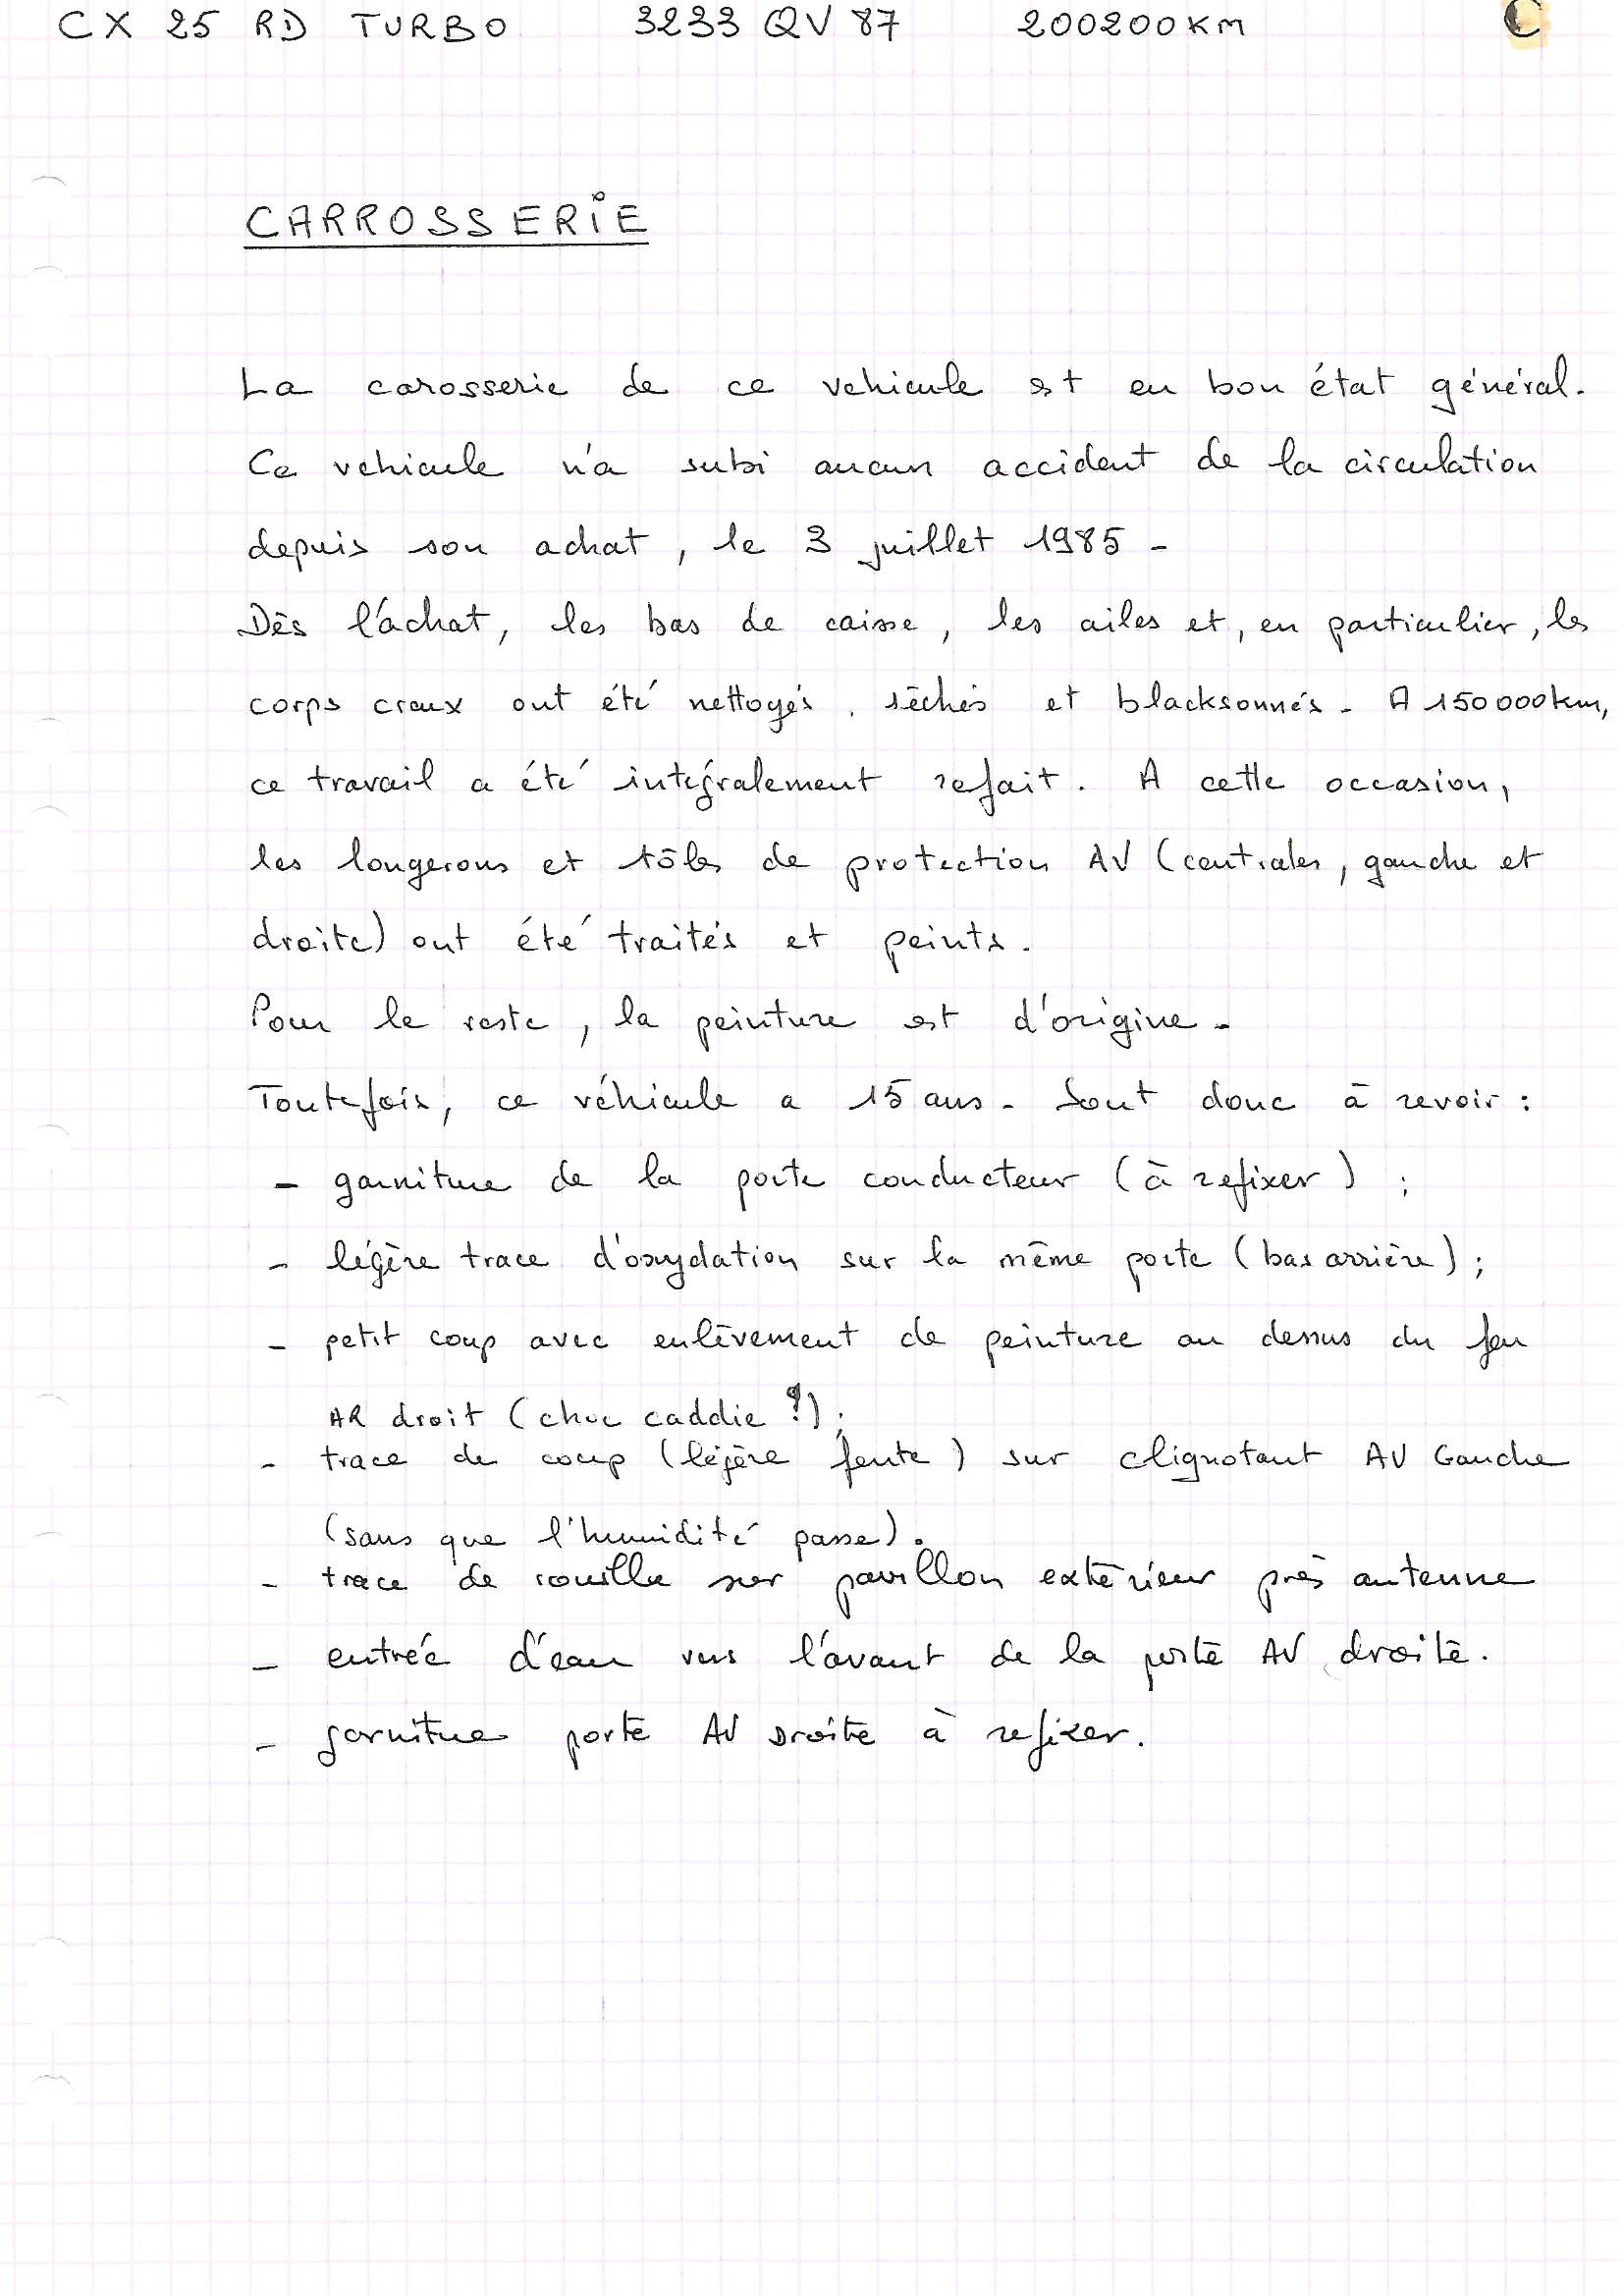 CX 25 RD TURBO 3233 QV 87 200200KM C
CARROSSERIE
La carosserie de ce vehicule est en bon état général.
Ce vehicule n'a subi aucun accident de la circulation
depuis son achat, le 3 juillet 1985 -
Dès l'achat, les bas de caisse, les ailes et, en particulier, les
corps creux ont été nettoyés, séchés et blacksonnés - A 150 000 km,
ce travail a été intégralement refait. A cette occasion,
les longerons et tôles de protection AV (centrales, gauche et
droite) ont été traités et peints.
Pour le reste, la peinture est d'origine -
Toutefois, ce véhicule a 15 ans - Sont donc à revoir :
- garniture de la porte conducteur (à refixer) ;
- légère trace d'oxydation sur la même porte (bas arrière) ;
- petit coup avec enlèvement de peinture au dessus du feu
AR droit (choc caddie ?) ;
- trace de coup (légère fente) sur clignotant AV Gauche
(sans que l'humidité passe).
- trace de rouille sur pavillon extérieur près antenne
- entrée d'eau vers l'avant de la porte AV droite.
- garniture porte AV Droite à refixer.